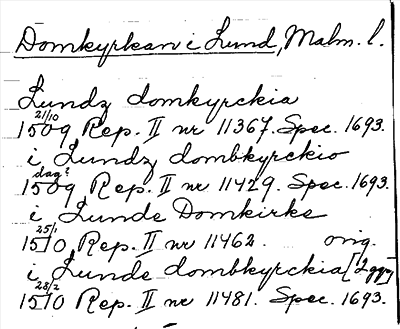 Domkyrkan i Lund, Malm. l.
Lundz domkyrckia
21/10
1509 Rep. II nr 11367. Spec. 1693.
i Lundz dombkyrckio
dag?
1509 Rep. II nr 11429. Spec. 1693.
i Lunde Domkirke
25/1
1510 Rep. II nr 11462. orig.
i Lunde dombkyrckia
28/2
1510 Rep. II nr 11481. Spec. 1693.